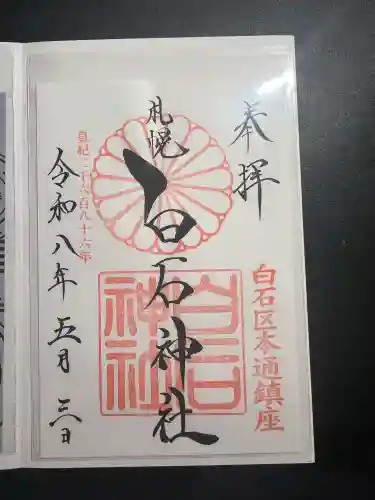 奉拝
白石区本通鎮座
札幌
白石神社
白石
神社
皇紀二千六百八十六年
令和八年五月三日